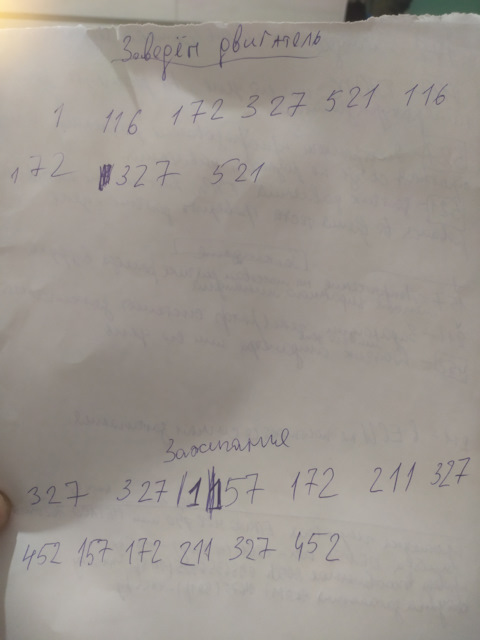 Заведён двигатель
1 116 172 327 521 116
172 327 521
Зажигания
327 327 157 172 211 327
452 157 172 211 327 452